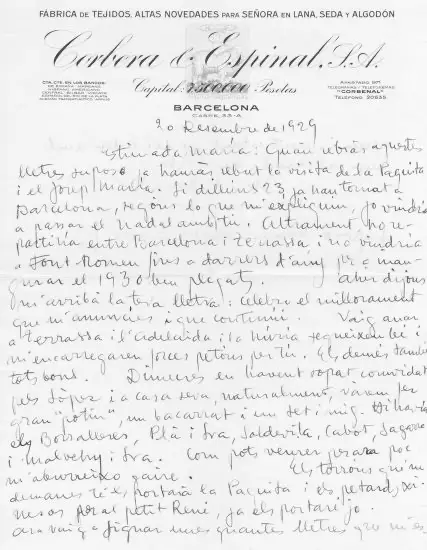 FÁBRICA DE TEJIDOS. ALTAS NOVEDADES PARA SEÑORA EN LANA, SEDA Y ALGODÓN
Corbera & Espinal, S.A.
CTA. CTE. EN LOS BANCOS:
Capital: Pesetas
APARTADO 971
"CORBENAL"
BARCELONA
CASPE, 33-A
20 Desembre de 1929
Estimada Maria: Quan rebràs aquestes
lletres suposo ja hauràs rebut la visita de la Paquita
i el Josep Maria. Si dilluns 23, ja han tornat a
Barcelona, segons lo que m'expliquin, jo vindria
a passar el Nadal amb tu. Altrament ho re-
partiria entre Barcelona i Terrassa i no vindria
a Font-Romeu fins a darrers d'any per a inau-
gurar el 1930 ben plegats. Ahir dijous
m'arribà la teva lletra: celebro el millorament
que m'anuncies i que continuï. Vaig anar
a Terrassa i l'Adelaida i la Núria segueixen bé i
m'encarregaren forces petons per tu. Els demés també
tots bons. Dimecres en havent sopat convidat
pels López i a casa seva, naturalment, vàrem fer
gran "potin", un bacarrat i un set i mig. Hi havia
els Borralleres, Plà i Sra, Soldevila, Cabot, Sagarra
i Malvehy i Sra. Com pots veure per ara poc
m'aburreixo gaire. Els torrons que'm
demanes te'ls portarà la Paquita i els petards, xi-
nesos per al petit René, ja els portaré jo.
Ara vaig a signar unes quantes lletres que m'es-